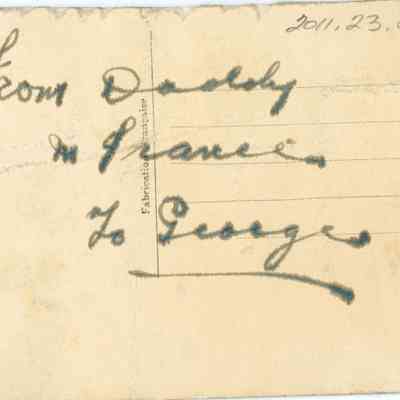 2011.23.
From Daddy
in France
To George
Fabrication Française